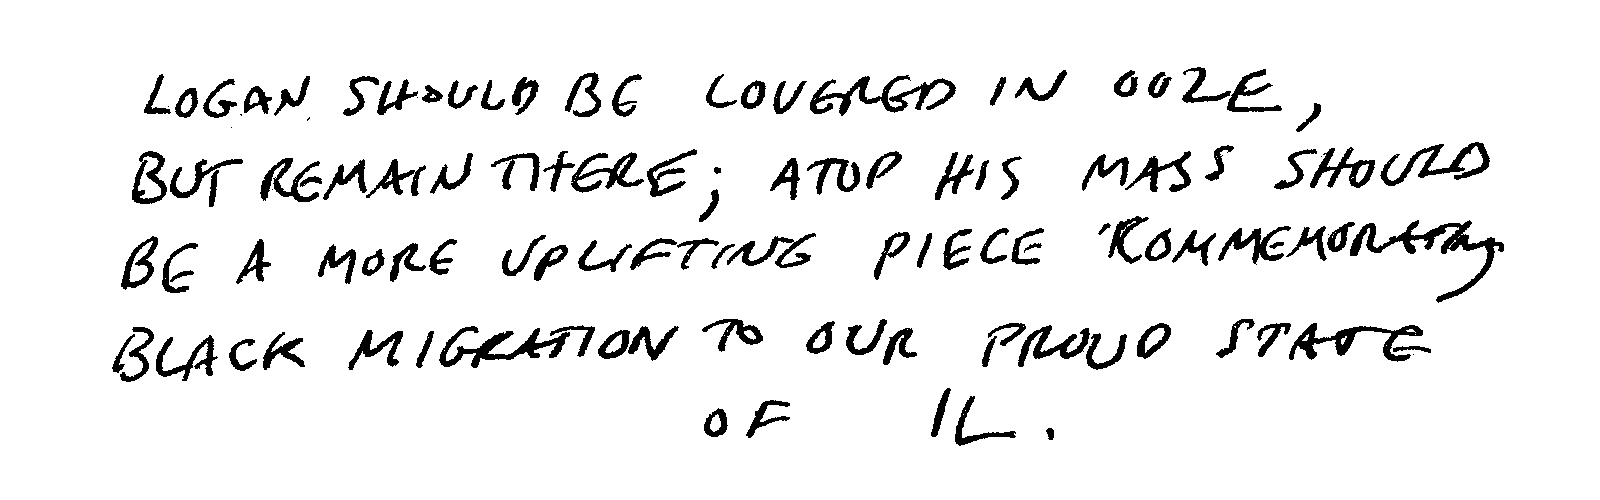 LOGAN SHOULD BE COVERED IN OOZE,
BUT REMAIN THERE; ATOP HIS MASS SHOULD
BE A MORE UPLIFTING PIECE KOMMEMORATING
BLACK MIGRATION TO OUR PROUD STATE
OF IL.